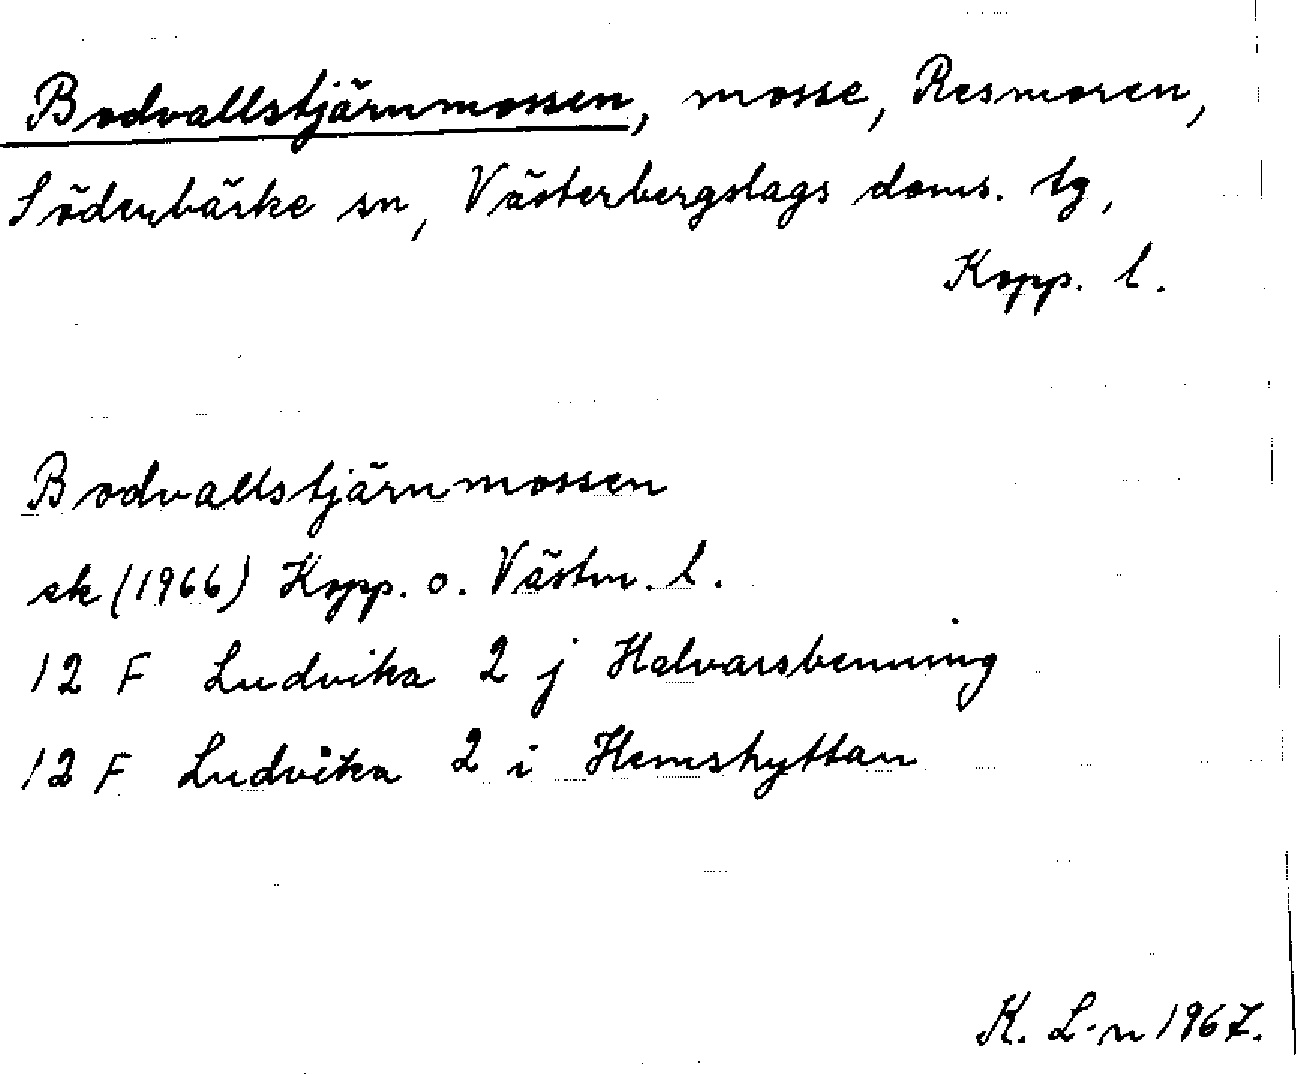 Bodvallstjärnmossen, mosse, Resmoren,
Söderbärke sn, Västerbergslags doms. tg,
Kopp. l.
Bodvallstjärnmossen
ek (1966) Kopp. o. Västm. l.
12 F Ludvika 2 j Halvarsbenning
12 F Ludvika 2 i Hemshyttan
K. L-n 1967.